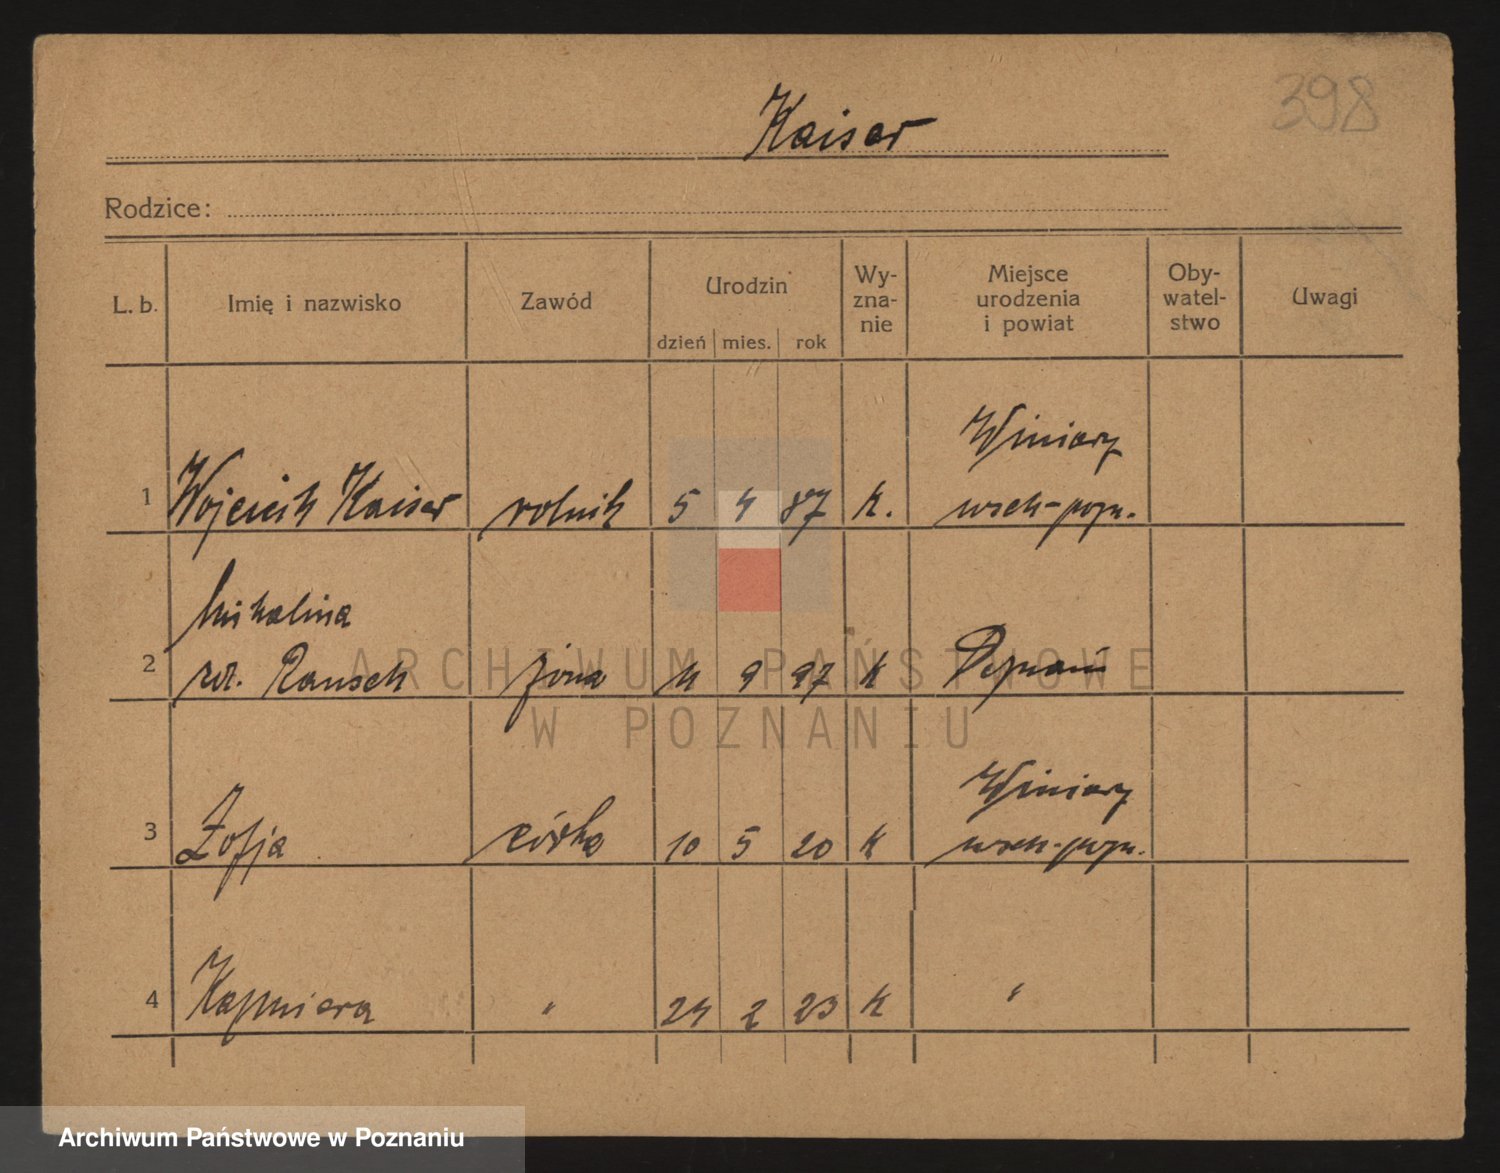 398
Kaiser
Rodzice:
L. b. Imię i nazwisko Zawód Urodzin dzień mies. rok Wy-zna-nie Miejsce urodzenia i powiat Oby-watel-stwo Uwagi
Winiary
1 Wojciech Kaiser rolnik 5 4 87 k. wsch-pozn.
Mikalina
2 Rausch żona 9 97 k Poznań
Winiary
3 Zofja córka 10 5 20 k wsch-pozn.
4 Kazmiera " 24 2 23 k "
ARCHIWUM PAŃSTWOWE
W POZNANIU
Archiwum Państwowe w Poznaniu